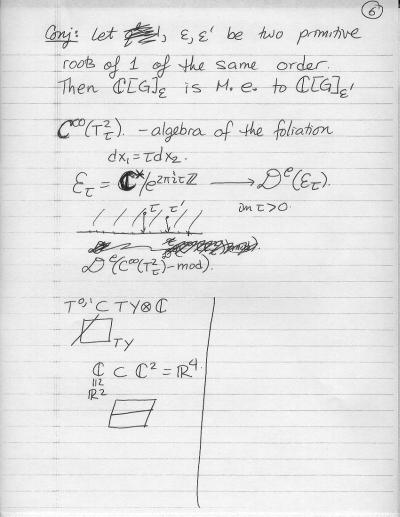 6
Conj: Let ε, ε' be two primitive
roots of 1 of the same order.
Then ℂ[G]_ε is M. e. to ℂ[G]_ε'
C^∞(T²_τ). - algebra of the foliation
dx₁ = τdx₂.
ℰ_τ = ℂ*/e^{2πiτℤ} ⟶ 𝒟^e(ℰ_τ).
im τ>0
τ τ'
𝒟^e(C^∞(T²_τ)-mod).
T^{0,1} ⊂ TY⊗ℂ
TY
ℂ ⊂ ℂ² = ℝ⁴.
ℝ²